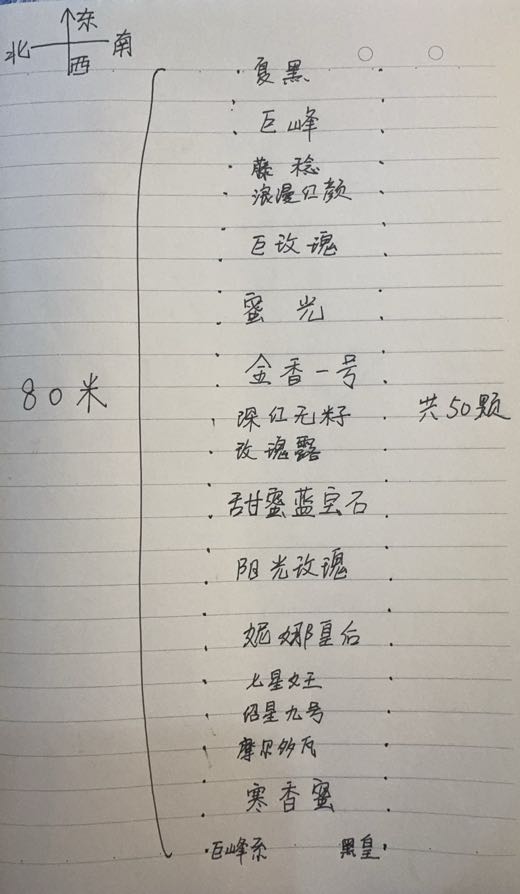 东
北 南
西
夏黑
巨峰
藤稔
浪漫红颜
巨玫瑰
蜜光
金香一号
80米
深红无籽 共50颗
玫瑰露
甜蜜蓝宝石
阳光玫瑰
妮娜皇后
七星女王
绍星九号
摩尔多瓦
寒香蜜
巨峰系 黑皇